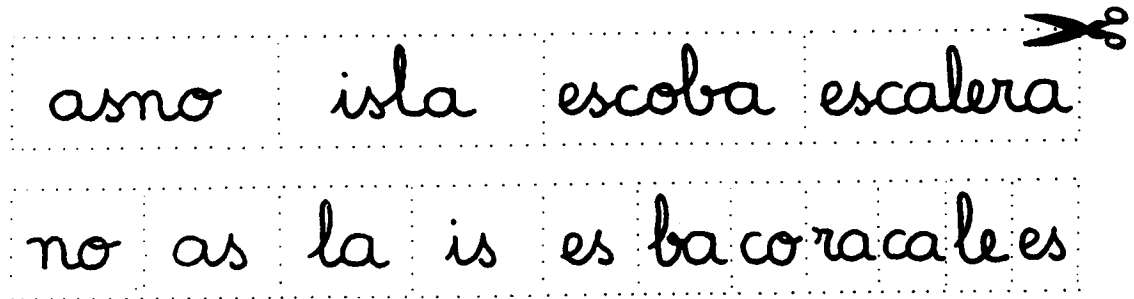 asno isla escoba escalera
no as la is es ba co ra ca le es